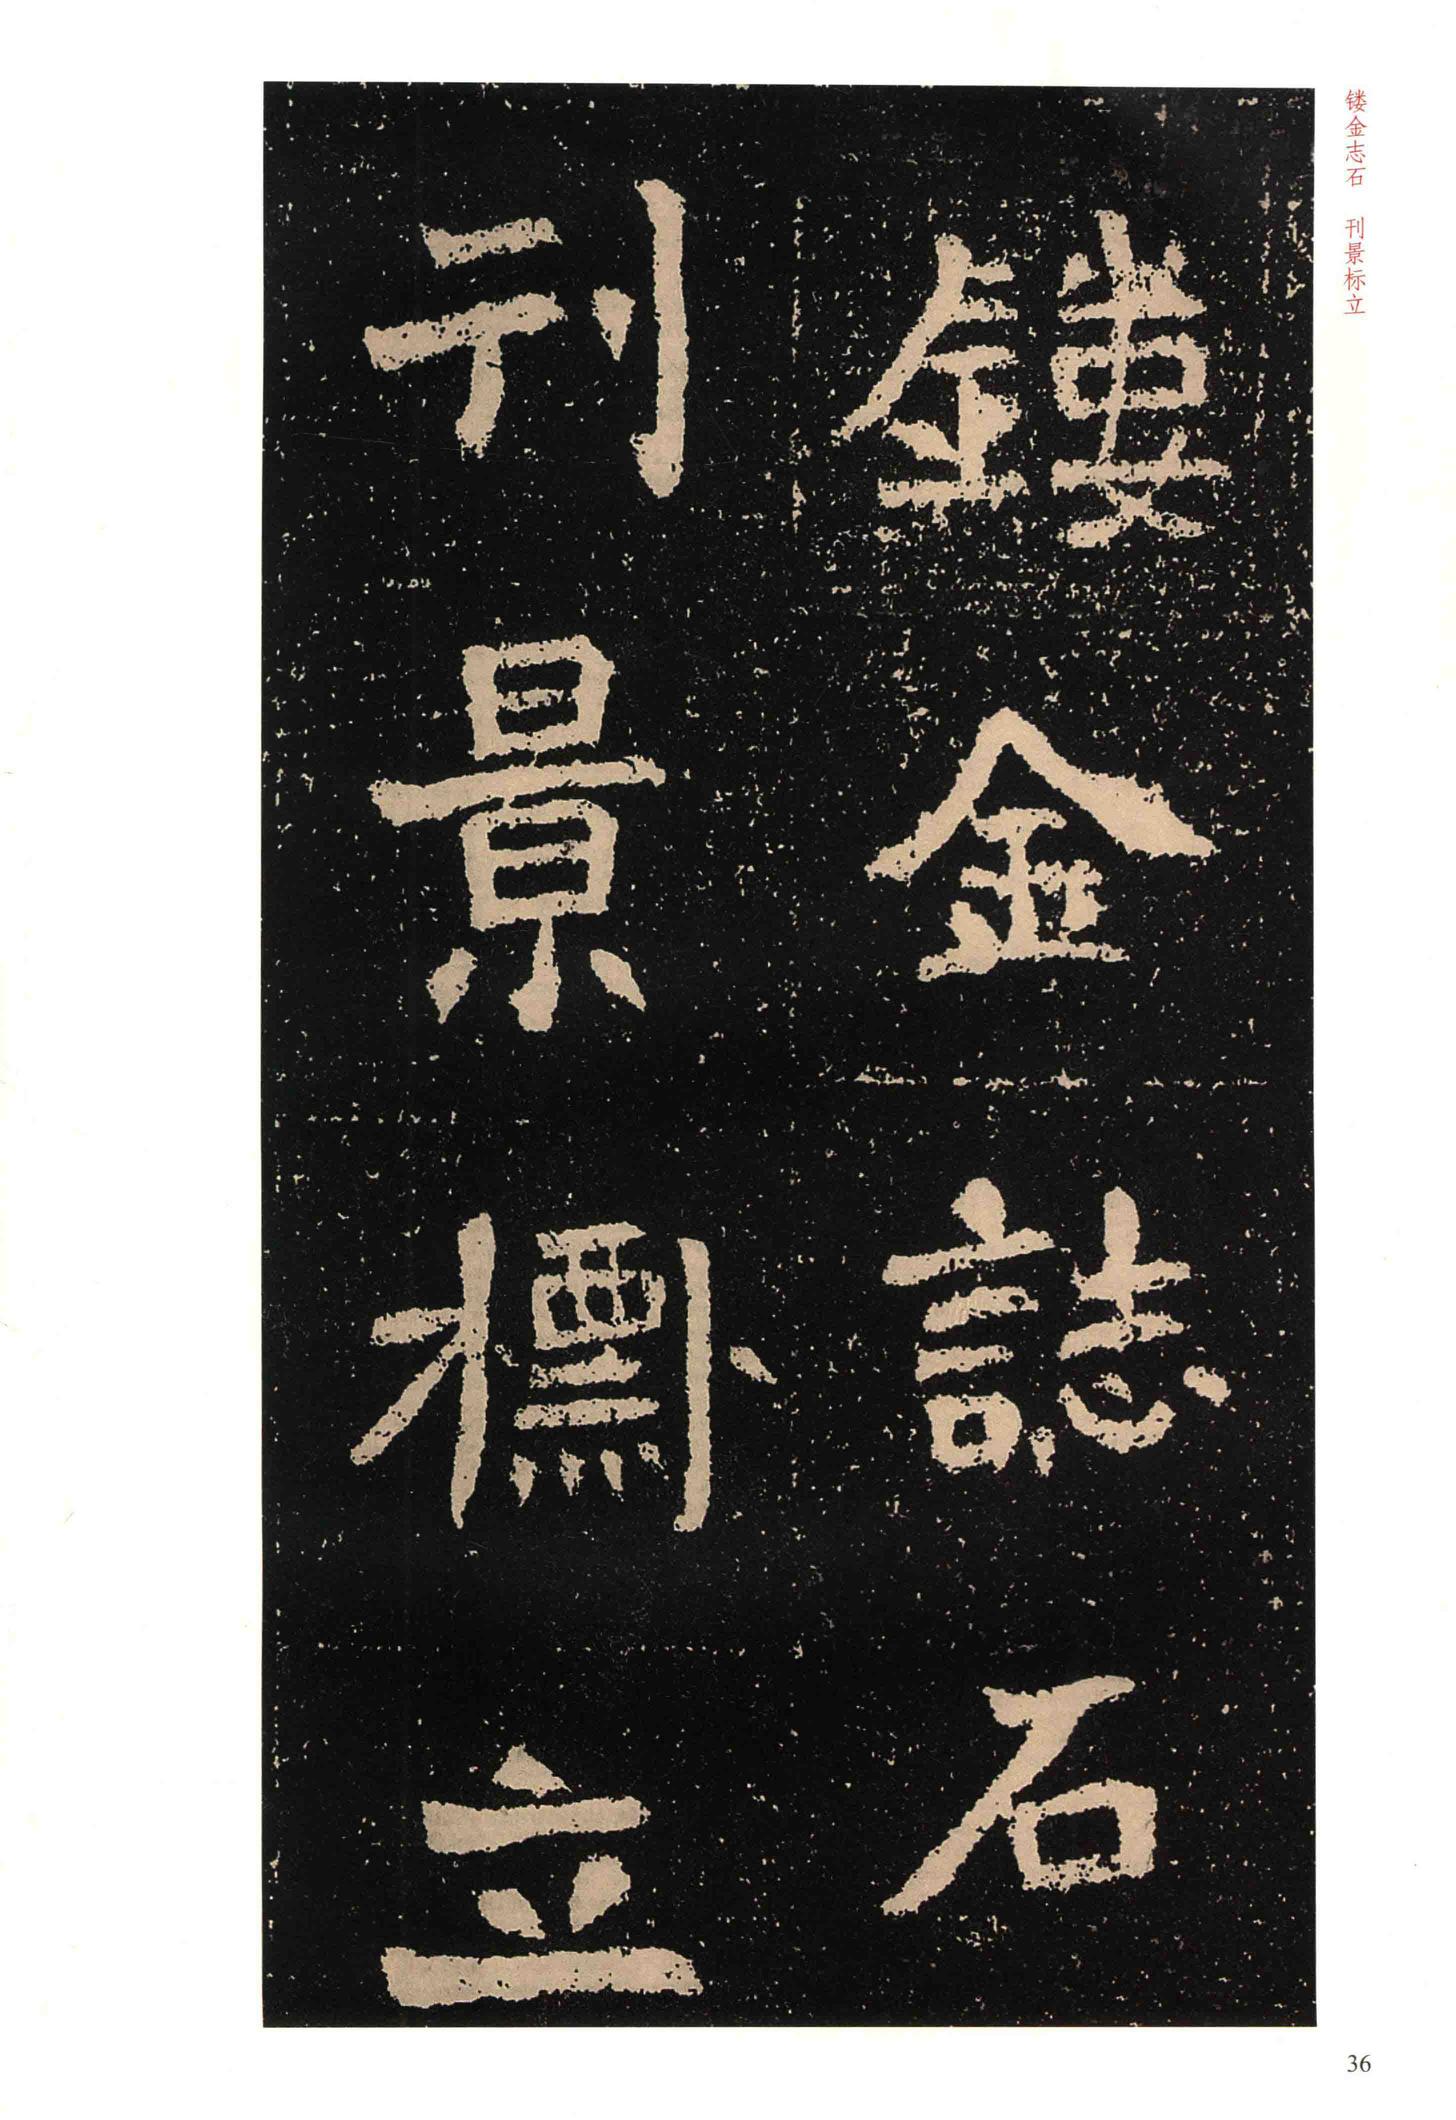 镂金志石　刊景标立
鏤金誌石
刊景檦立
36